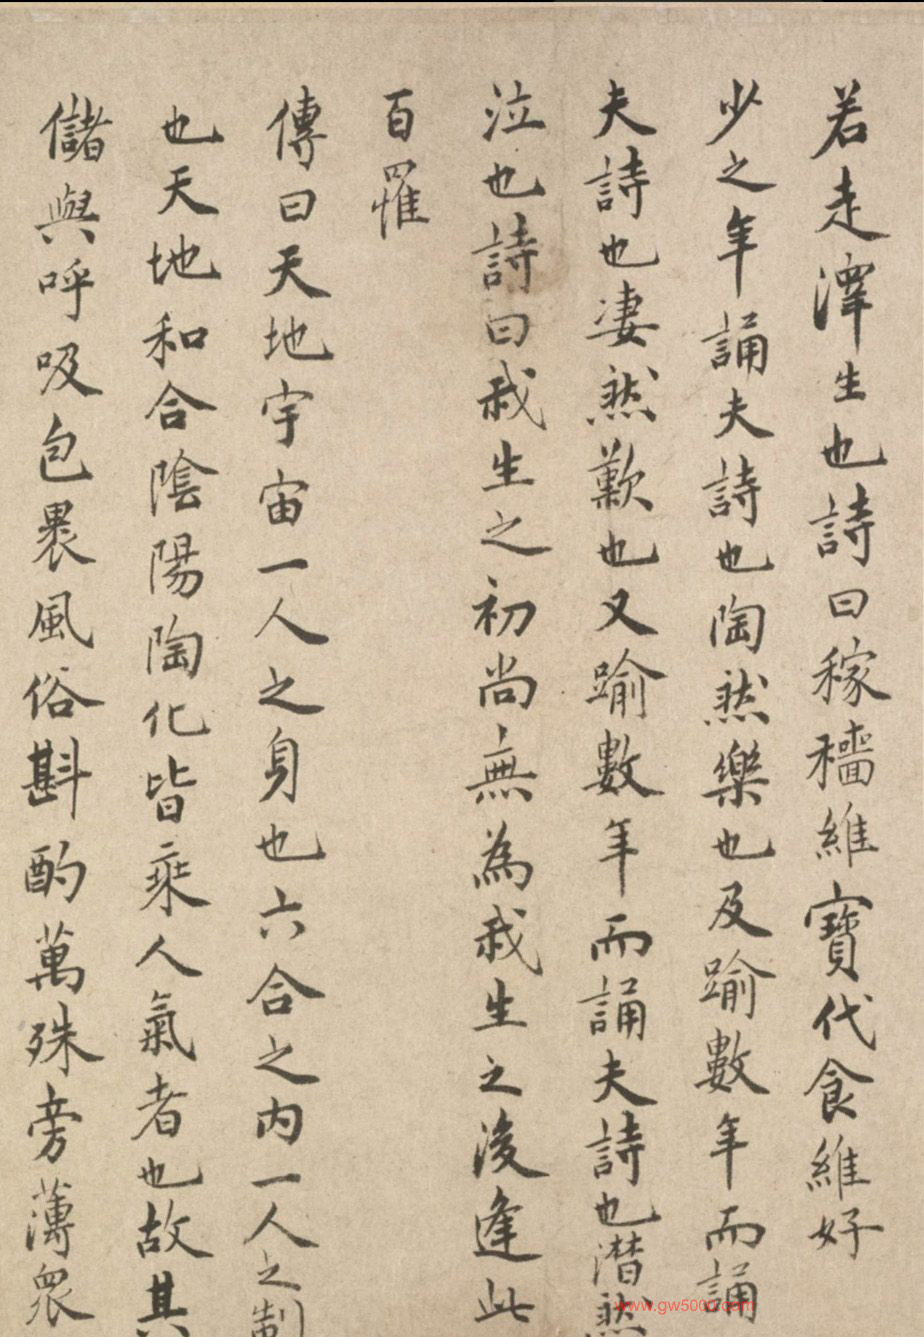 若走澤生也詩曰稼穡維寶代食維好
少之年誦夫詩也陶然樂也及踰數年而誦
夫詩也凄然歎也又踰數年而誦夫詩也潸然
泣也詩曰我生之初尚無為我生之後逢此
百罹
傳曰天地宇宙一人之身也六合之内一人之制
也天地和合陰陽陶化皆乘人氣者也故其
儲與呼吸包裹風俗斟酌萬殊旁薄衆
www.gw5000.com